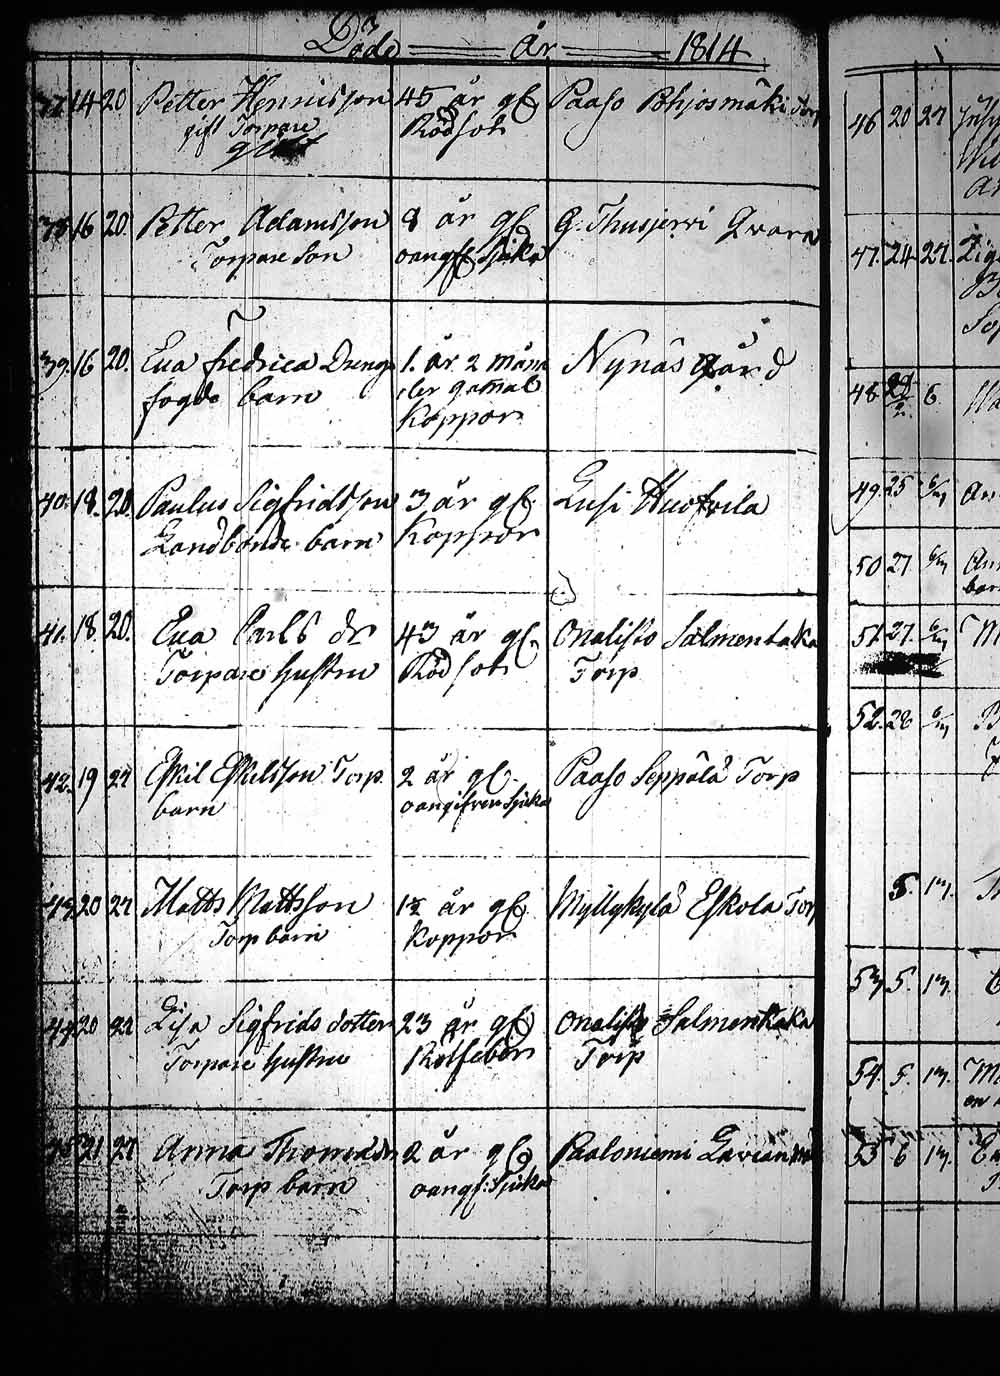 Döde år 1814
37. 14 20 Petter Hennisson 45 år gl Paaso Pohjosmäki Torp
gift Torpare Rödsot
38. 16 20. Petter Adamsson 8 år gl G. Thusjerwi Qvarn
Torpare Son oangf Sjuka
39. 16 20. Eva Fredrica Dreng 1. år 2 måna Nynäs gård
fogde barn der gamal
Koppor
40. 18. 20. Paulus Sigfridsson 3 år gl. Lusi Huofvila
Landbonde barn Koppor
41. 18. 20. Eva Carls dr 43 år gl. Onalisto Salmentaka
Torpare hustru Rödsot Torp
42. 19 27 Eskil Eskilsson Torp 2 år gl. Paaso Seppälä Torp
barn oangifven Sjuka
43. 20 27 Matts Mattsson 1½ år gl Myllykylä Eskola Torp
Torp barn Koppor
44. 20 27 Lisa Sigfrids dotter 23 år gl Onalisto Salmentaka
Torpare hustru Rötfeber Torp
45 21 27 Anna Thomae dr 2 år gl Paaloniemi
Torp barn oangf: Sjuka
46 20 27
47. 24. 27.
48. 6.
49. 25 6/m
50 27. 6/m
barn
51. 27. 6/m
52. 28 6/m
5. 13.
53. 5. 13.
54. 5. 13.
55 6 13.